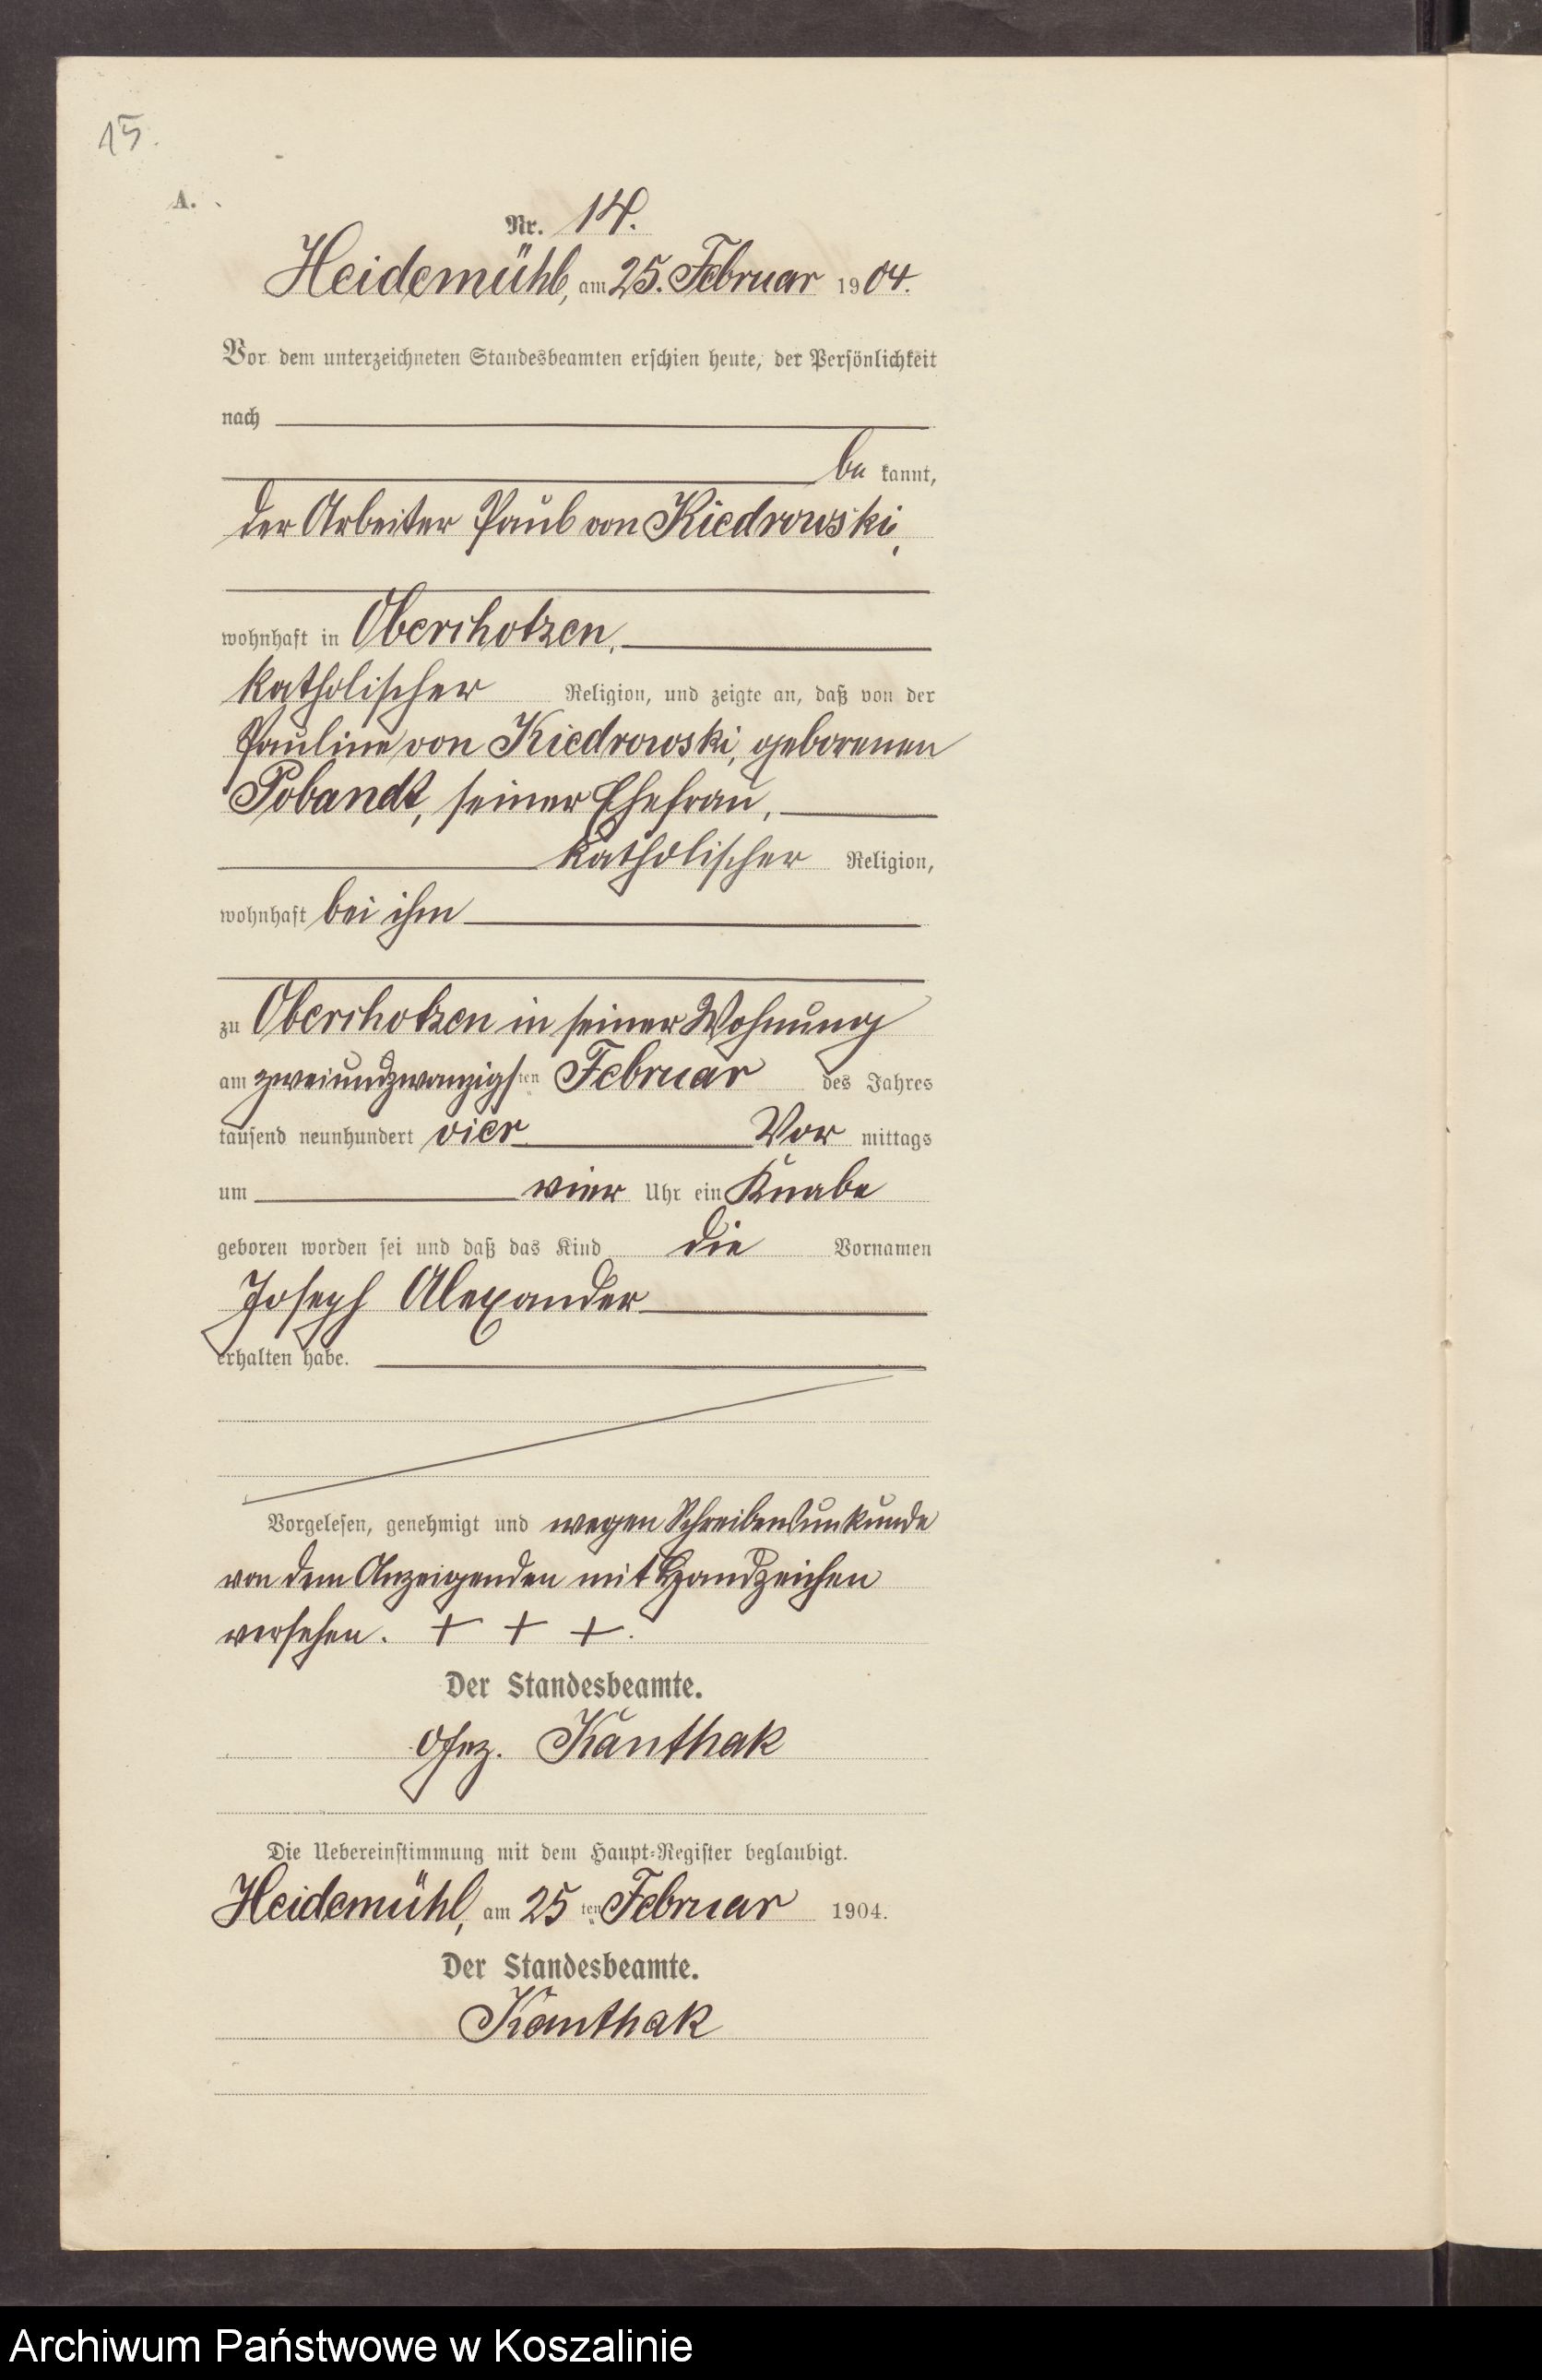 15.
A.
Nr. 14.
Heidemühl, am 25. Februar 1904.
Vor dem unterzeichneten Standesbeamten erschien heute, der Persönlichkeit
nach
be kannt,
der Arbeiter Paul von Kiedrowski,
wohnhaft in Oberchotzen,
katholischer Religion, und zeigte an, daß von der
Pauline von Kiedrowski, geborenen
Pobandt, seiner Ehefrau,
katholischer Religion,
wohnhaft bei ihm
zu Oberchotzen in seiner Wohnung
am zweiundzwanzigsten Februar des Jahres
tausend neunhundert vier Vor mittags
um vier Uhr ein Knabe
geboren worden sei und daß das Kind die Vornamen
Joseph Alexander
erhalten habe.
Vorgelesen, genehmigt und wegen Schreibensunkunde
von dem Anzeigenden mit Handzeichen
versehen. + + +.
Der Standesbeamte.
Gez. Kanthak
Die Uebereinstimmung mit dem Haupt-Register beglaubigt.
Heidemühl, am 25ten Februar 1904.
Der Standesbeamte.
Kanthak
Archiwum Państwowe w Koszalinie